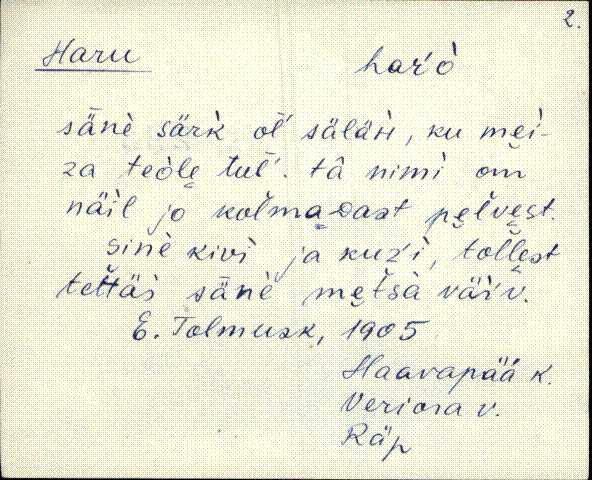 2.
Haru haŕò
säne̊ särk oĺ säläн, ku mẹi-
za teole tuĺ. tâ nimi om
näil jo koĺmandast pẹĺvẹst.
sine̊ kivi ja kuźi, tollẹst
tettäs säne̊ mẹtsa väŕv.
E. Tolmusk, 1905
Haavapää k.
Veriora v.
Räp